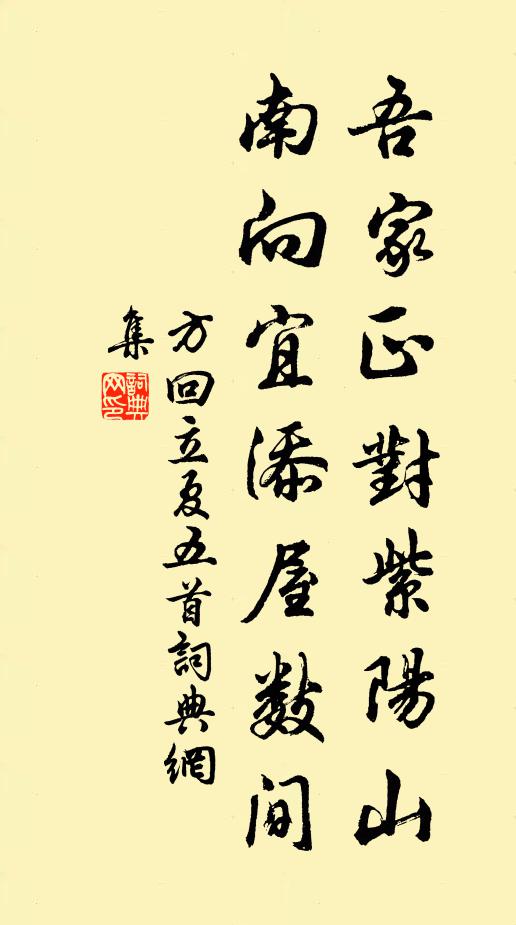 吾家正對紫陽山
南向宜添屋數間
方回立夏五首詞典網
集
詞典
网印